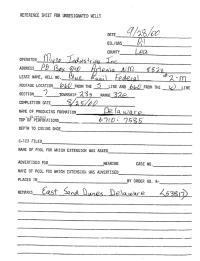 REFERENCE SHEET FOR UNDESIGNATED WELLS
DATE 9/28/00
OIL/GAS Oil
COUNTY Lea
OPERATOR Industries Inc
ADDRESS PO Box 840 Artesia NM 8821
LEASE NAME, WELL NO. Blue Federal #2-M
FOOTAGE LOCATION 660 FROM THE S LINE AND 660 FROM THE W LINE
SECTION TOWNSHIP 23s RANGE 32e
COMPLETION DATE 8/25/00
NAME OF PRODUCING FORMATION Delaware
TOP OF PERFORATIONS 6710-7585
DEPTH TO CASING SHOE
C-123 FILED
NAME OF POOL FOR WHICH EXTENSION WAS ASKED
ADVERTISED FOR HEARING CASE NO.
NAME OF POOL FOR WHICH EXTENSION WAS ADVERTISED
PLACED IN BY ORDER NO. R-
REMARKS East Sand Dunes Delaware (53817)